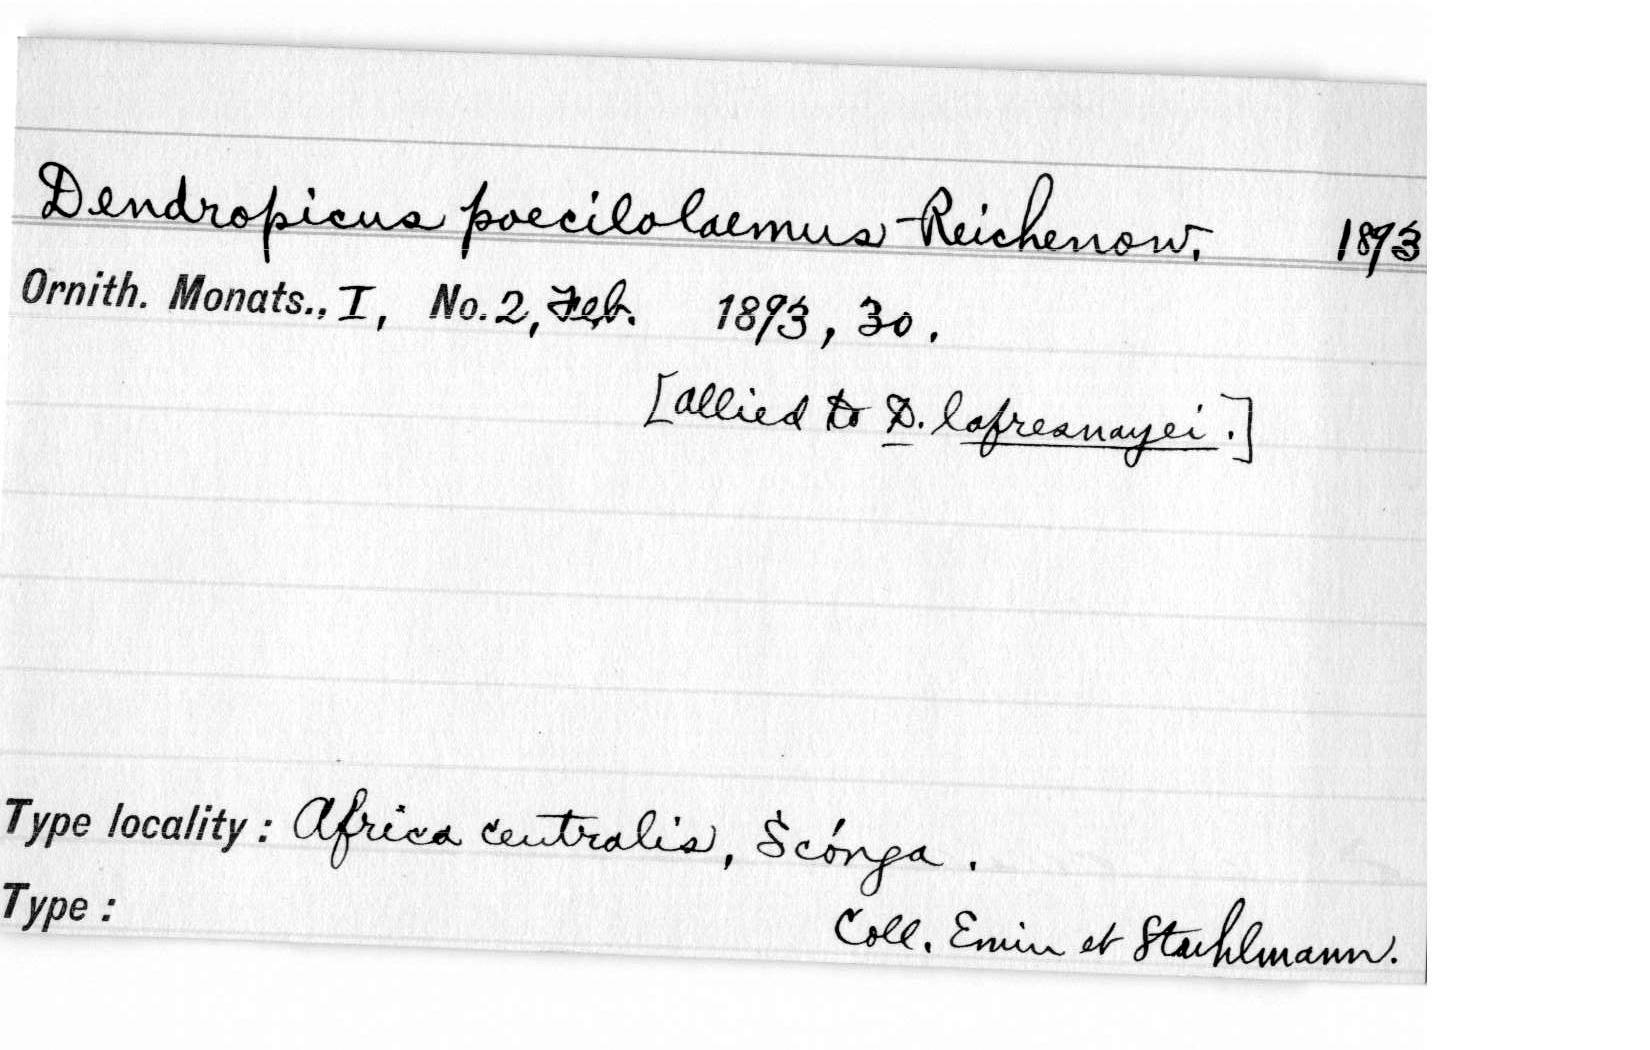 Dendropicus poecilolaemus Reichenow. 1893
Ornith. Monats., I, No. 2, Feb. 1893, 30.
[allied to D. lafresnayei.]
Type locality: Africa centralis, Sćónga.
Type:
Coll. Emin et Stuhlmann.